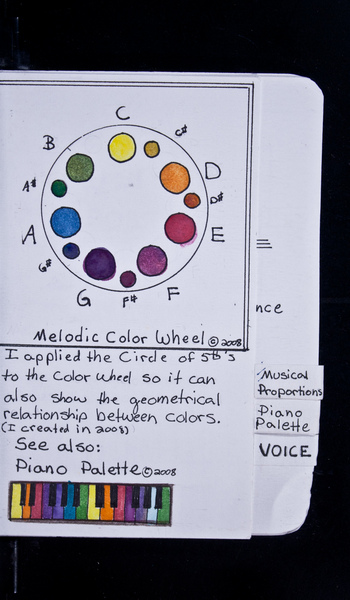 C
C#
B
D
A#
D#
A
E
G#
G
F#
F
Melodic Color Wheel © 2008
I applied the Circle of 5th's
to the Color Wheel so it can
also show the geometrical
relationship between colors.
(I created in 2008)
See also:
Piano Palette © 2008
nce
Musical
Proportions
Piano
Palette
VOICE